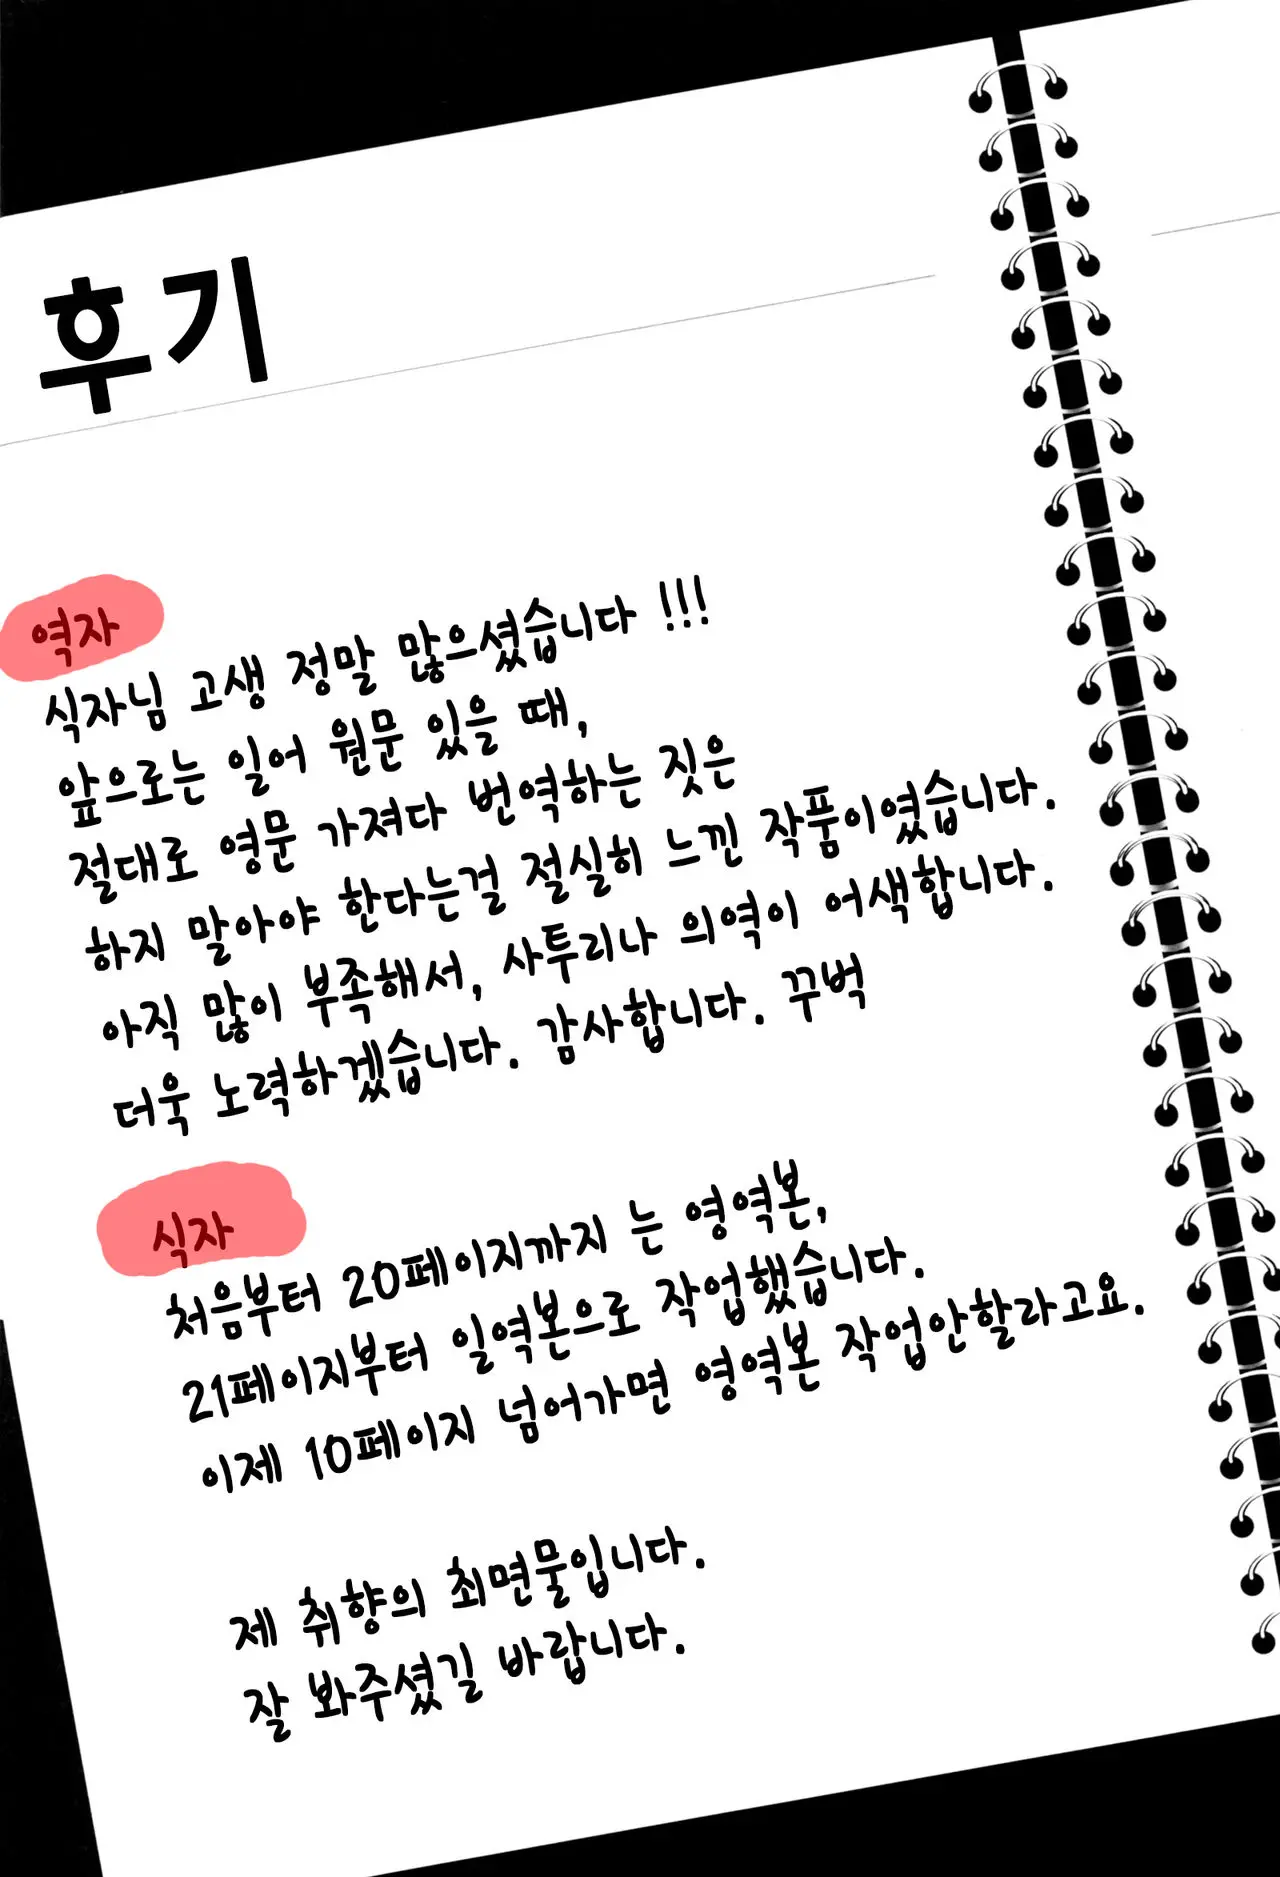 후기
역자
식자님 고생 정말 많으셨습니다 !!!
앞으로는 일어 원문 있을 때,
절대로 영문 가져다 번역하는 짓은
하지 말아야 한다는걸 절실히 느낀 작품이였습니다.
아직 많이 부족해서, 사투리나 의역이 어색합니다.
더욱 노력하겠습니다. 감사합니다. 꾸벅
식자
처음부터 20페이지까지 는 영역본,
21페이지부터 일역본으로 작업했습니다.
이제 10페이지 넘어가면 영역본 작업안할라고요.
제 취향의 최면물입니다.
잘 봐주셨길 바랍니다.